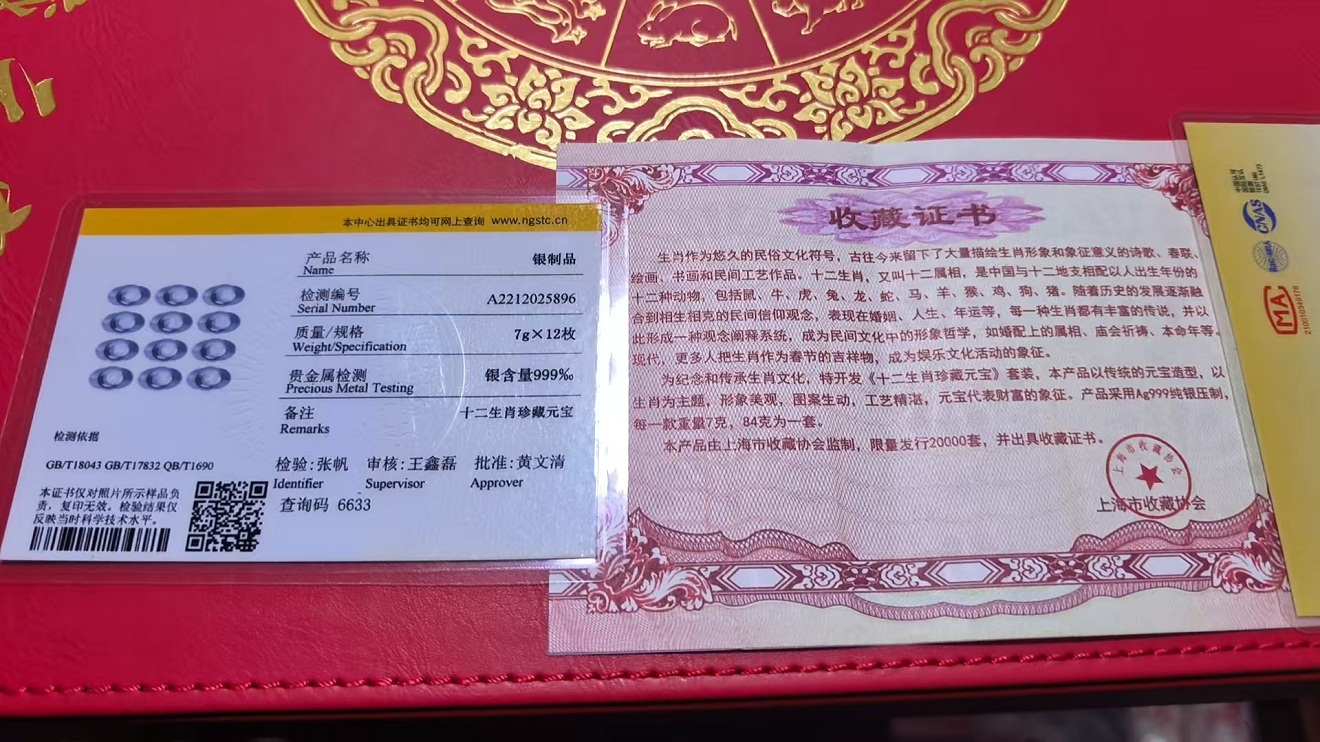 本中心出具证书均可网上查询 www.ngstc.cn
产品名称 银制品
Name
检测编号 A2212025896
Serial Number
质量/规格 7g×12枚
Weight/Specification
贵金属检测 银含量999‰
Precious Metal Testing
备注 十二生肖珍藏元宝
Remarks
检测依据
GB/T18043 GB/T17832 QB/T1690
检验:张帆 审核:王鑫磊 批准:黄文清
Identifier Supervisor Approver
本证书仅对照片所示样品负
责，复印无效。检验结果仅
反映当时科学技术水平。
查询码 6633
收藏证书
生肖作为悠久的民俗文化符号，古往今来留下了大量描绘生肖形象和象征意义的诗歌、春联、
绘画、书画和民间工艺作品。十二生肖，又叫十二属相，是中国与十二地支相配以人出生年份的
十二种动物，包括鼠、牛、虎、兔、龙、蛇、马、羊、猴、鸡、狗、猪。随着历史的发展逐渐融
合到相生相克的民间信仰观念，表现在婚姻、人生、年运等，每一种生肖都有丰富的传说，并以
此形成一种观念阐释系统，成为民间文化中的形象哲学，如婚配上的属相、庙会祈祷、本命年等。
现代，更多人把生肖作为春节的吉祥物，成为娱乐文化活动的象征。
为纪念和传承生肖文化，特开发《十二生肖珍藏元宝》套装，本产品以传统的元宝造型，以
生肖为主题，形象美观，图案生动，工艺精湛，元宝代表财富的象征。产品采用Ag999纯银压制，
每一款重量7克，84克为一套。
本产品由上海市收藏协会监制，限量发行20000套，并出具收藏证书。
上海市收藏协会
上海市收藏协会
CNAS
MA